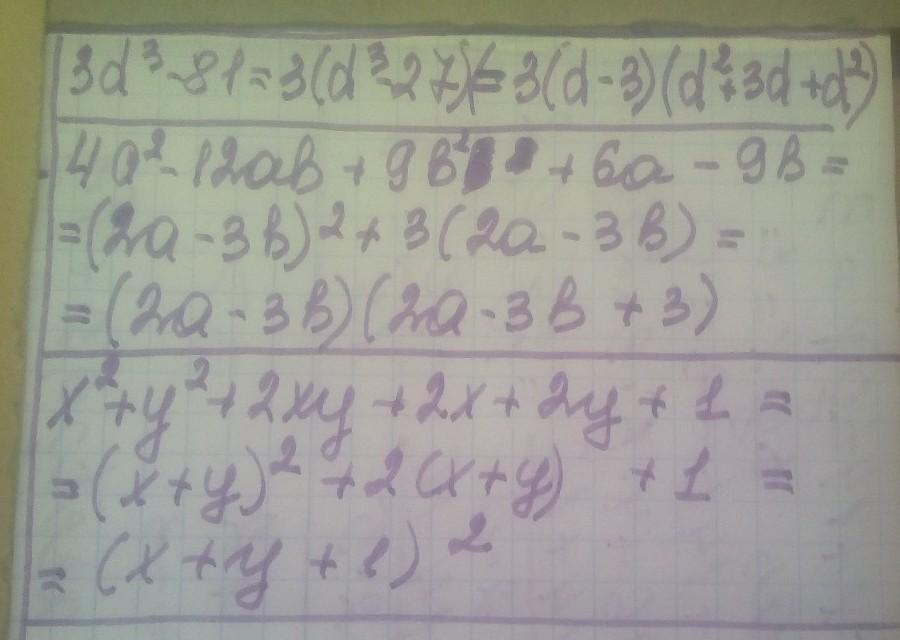 3d³-81=3(d³-27)(=3(d-3)(d²+3d+d²)
4a²-12ab+9b²+6a-9b=
=(2a-3b)²+3(2a-3b)=
=(2a-3b)(2a-3b+3)
x²+y²+2xy+2x+2y+1=
=(x+y)²+2(x+y)+1=
=(x+y+1)²